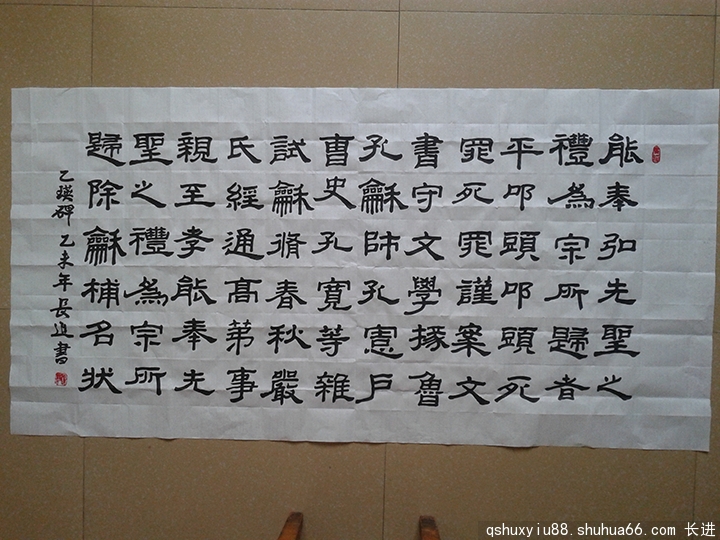 能奉弘先聖之
禮為宗所歸者
平叩頭叩頭死
罪死罪謹案文
書守文學掾魯
孔龢師孔憲戶
曹史孔寬等雜
試龢脩春秋嚴
氏經通高第事
親至孝能奉先
聖之禮為宗所
歸除龢補名狀
乙瑛碑 乙未年長進書
qshuxyiu88.shuhua66.com 长进